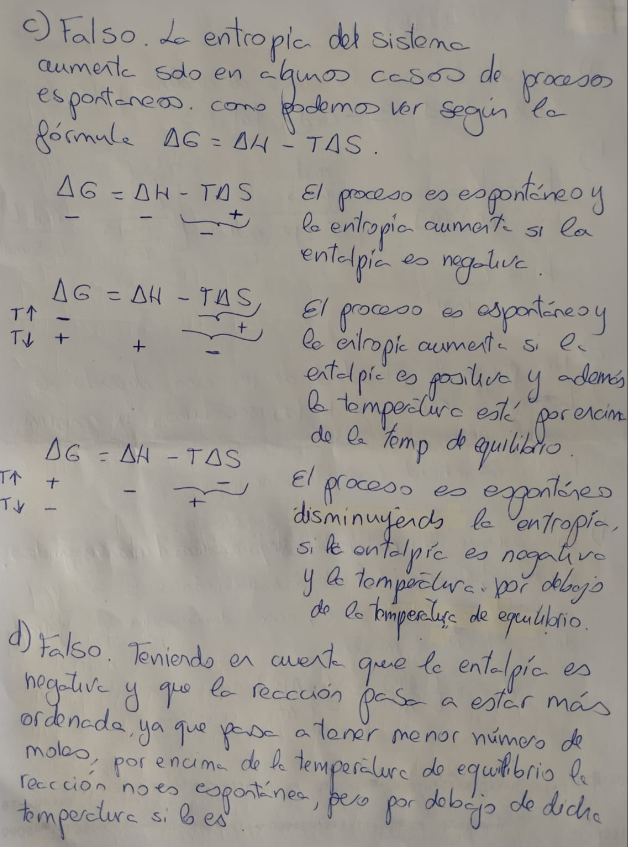 c) Falso. La entropía del sistema
aumenta solo en algunos casos de procesos
espontaneos. como podemos ver según la
fórmula ΔG = ΔH - TΔS.
ΔG = ΔH - TΔS
- - +
-
El proceso es espontáneo y
la entropía aumenta si la
entalpía es negativa.
ΔG = ΔH - TΔS
T↑ - +
T↓ + + -
El proceso es espontáneo y
la entropía aumenta si la
entalpía es positiva y además
la temperatura está por encima
de la temp de equilibrio.
ΔG = ΔH - TΔS
T↑ + - -
T↓ - +
El proceso es espontáneo
disminuyendo la entropía,
si la entalpía es negativa
y la temperatura por debajo
de la temperatura de equilibrio.
d) Falso. Teniendo en cuenta que la entalpía es
negativa y que la reacción pasa a estar más
ordenada, ya que pasa a tener menor número de
moles, por encima de la temperatura de equilibrio la
reacción no es espontánea, pero por debajo de dicha
temperatura si lo es.